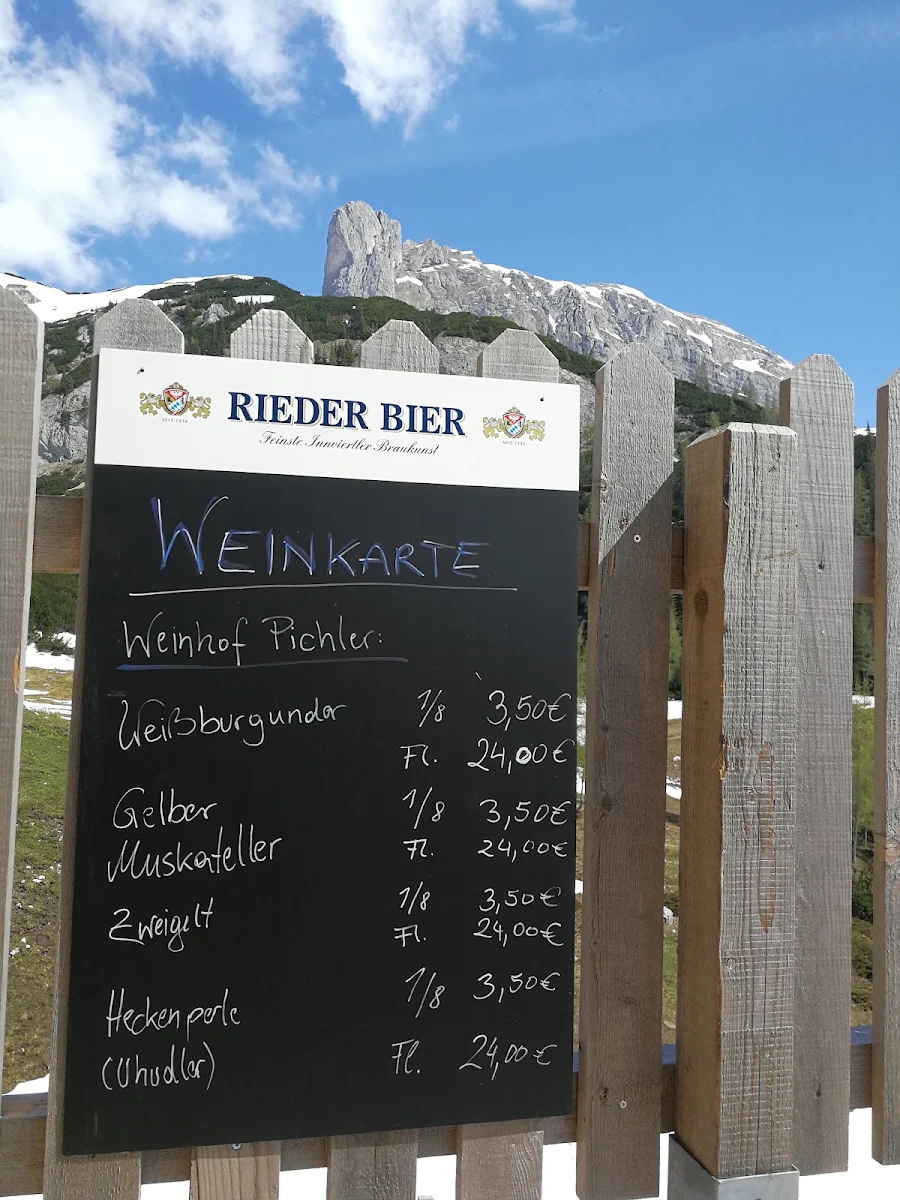 RIEDER BIER
Feinste Innviertler Braukunst
SEIT 1536
SEIT 1536
WEINKARTE
Weinhof Pichler:
Weißburgunder 1/8 3,50€
Fl. 24,00€
Gelber 1/8 3,50€
Muskateller Fl. 24,00€
Zweigelt 1/8 3,50€
Fl. 24,00€
Heckenperle 1/8 3,50€
(Uhudler) Fl. 24,00€